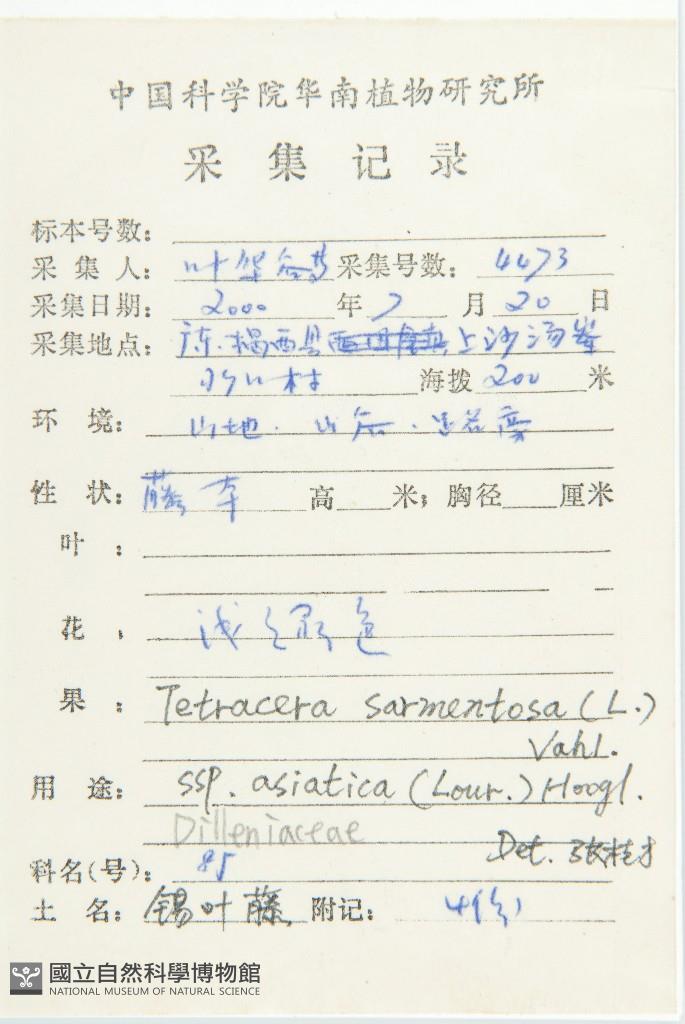 中国科学院华南植物研究所
采集记录
标本号数：
采集人：叶华谷等 采集号数：4473
采集日期：2000年7月20日
采集地点：广东．揭西县 上沙汤
村 海拨200米
环境：山地．山谷．
性状：藤本 高 米；胸径 厘米
叶：
花： 浅 色
果：Tetracera sarmentosa (L.)
Vahl.
用途：ssp. asiatica (Lour.) Hoogl.
Dilleniaceae
Det. 张桂才
科名(号)：85
土名：锡叶藤 附记：4份
國立自然科學博物館
NATIONAL MUSEUM OF NATURAL SCIENCE